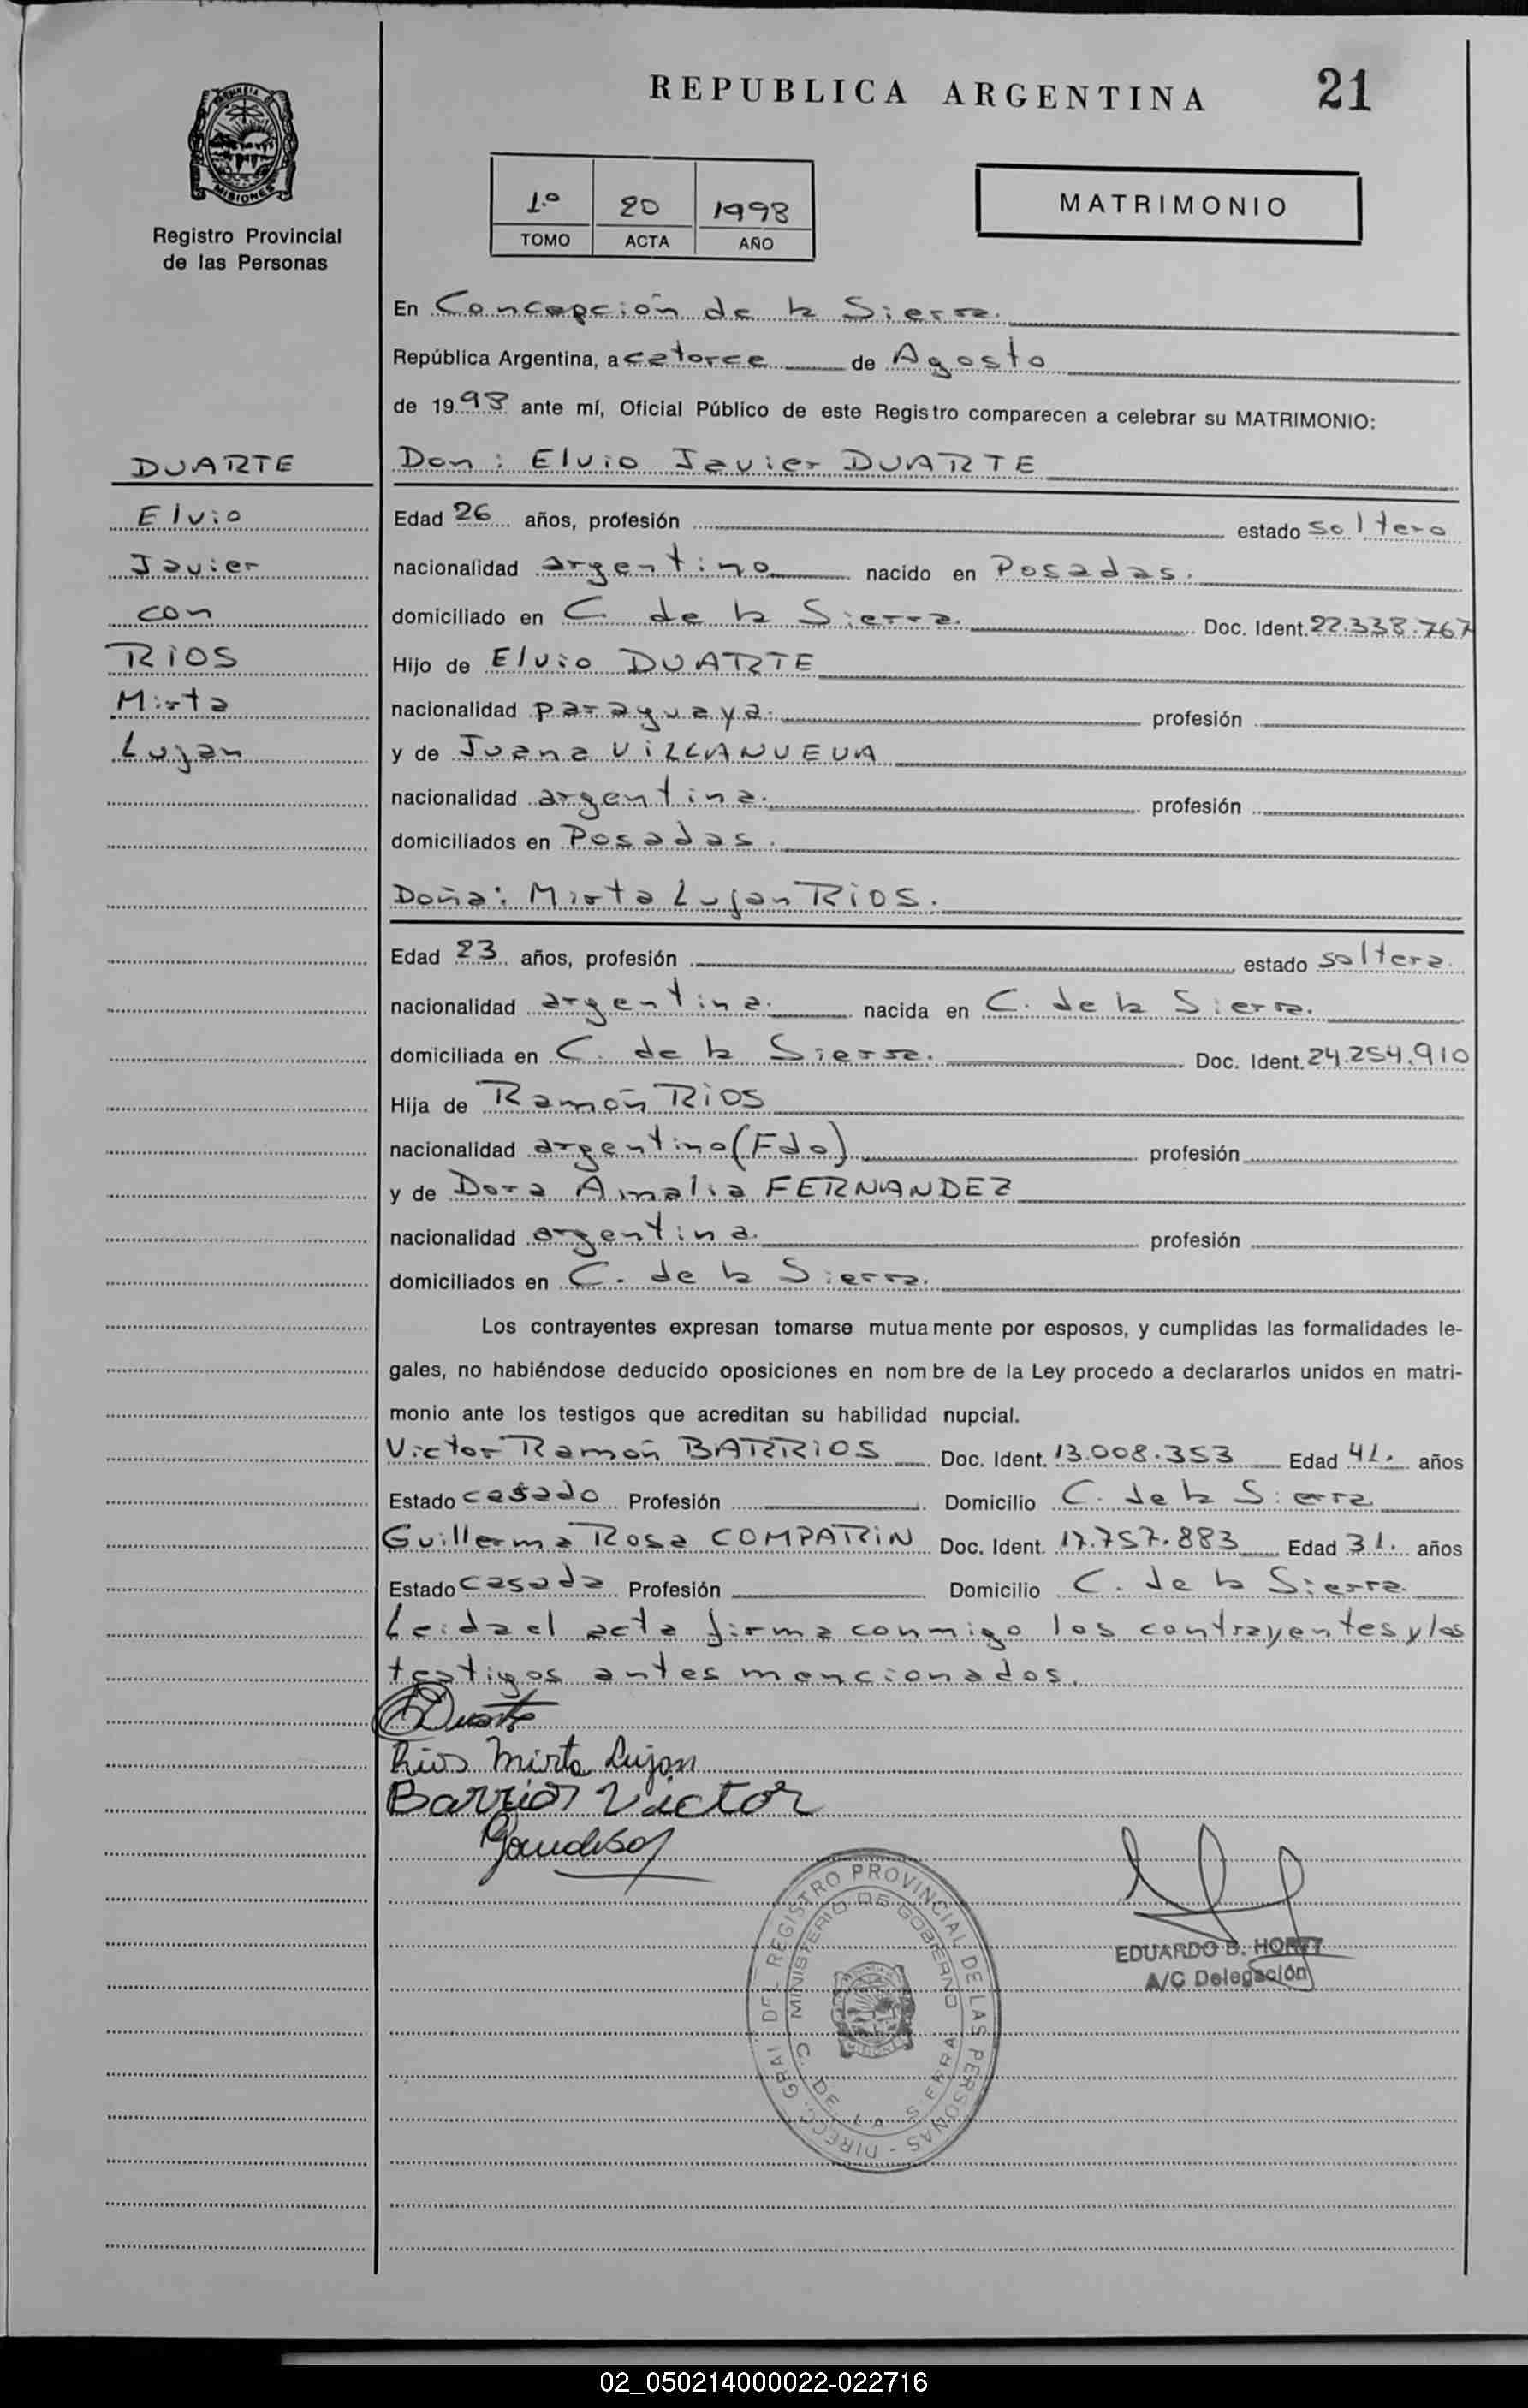 REPUBLICA ARGENTINA 21
PROVINCIA D MISIONES
Registro Provincial
de las Personas
1º 20 1998
TOMO ACTA AÑO
MATRIMONIO
En Concepción de la Sierra.
República Argentina, a catorce de Agosto
de 1998 ante mí, Oficial Público de este Registro comparecen a celebrar su MATRIMONIO:
DUARTE
Elvio
Javier
con
RIOS
Mirta
Lujan
Don: Elvio Javier DUARTE
Edad 26 años, profesión estado soltero
nacionalidad argentino nacido en Posadas.
domiciliado en C. de la Sierra. Doc. Ident. 22.338.767
Hijo de Elvio DUARTE
nacionalidad paraguaya. profesión
y de Juana VILLANUEVA
nacionalidad argentina. profesión
domiciliados en Posadas.
Doña: Mirta Lujan RIOS.
Edad 23 años, profesión estado soltera.
nacionalidad argentina. nacida en C. de la Sierra.
domiciliada en C. de la Sierra. Doc. Ident. 24.254.910
Hija de Ramón RIOS
nacionalidad argentino (Fdo) profesión
y de Dora Amalia FERNANDEZ
nacionalidad argentina. profesión
domiciliados en C. de la Sierra.
Los contrayentes expresan tomarse mutuamente por esposos, y cumplidas las formalidades le-
gales, no habiéndose deducido oposiciones en nombre de la Ley procedo a declararlos unidos en matri-
monio ante los testigos que acreditan su habilidad nupcial.
Victor Ramón BARRIOS Doc. Ident. 13.008.353 Edad 41. años
Estado casado Profesión Domicilio C. de la Sierra
Guillerma Rosa COMPARIN Doc. Ident. 17.757.883 Edad 31. años
Estado casada Profesión Domicilio C. de la Sierra.
Leida el acta firma conmigo los contrayentes y los
testigos antes mencionados.
Duarte
Rios Mirta Lujan
Barrios Victor
DIRECC. GRAL DEL REGISTRO PROVINCIAL DE LAS PERSONAS -
MINISTERIO DE GOBIERNO
C. DE LA SIERRA
EDUARDO B.
A/C Delegación
02_050214000022-022716